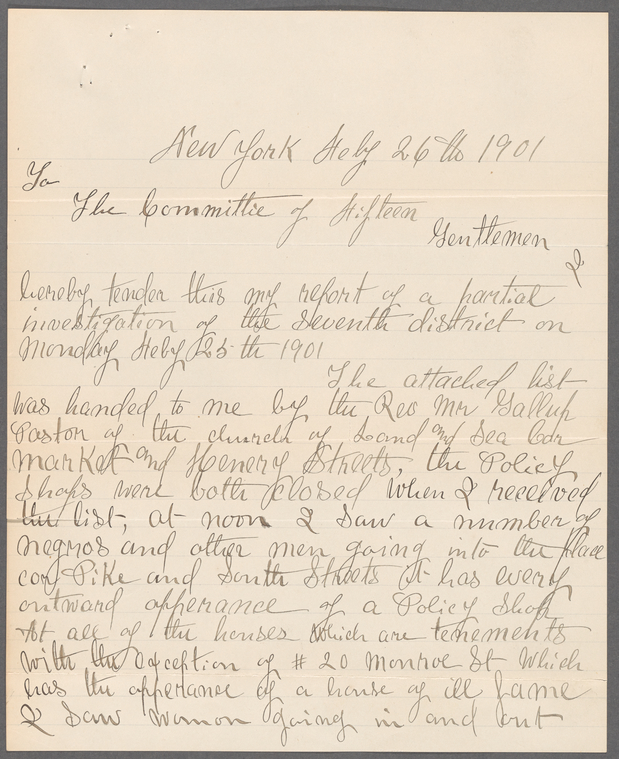 New York Feby 26th 1901
To
The Committie of Fifteen
Gentlemen
I
hereby tender this my report of a partial
investigation of the Seventh district on
Monday Feby 25th 1901
The attached list
was handed to me by the Rev Mr Gallup
Pastor of the church of Land and Sea Cor
market and Henery Streets, the Policy
shops were both closed when I received
the list, at noon I saw a number of
negros and other men going into the place
cor Pike and South Streets it has every
outward apperance of a Policy Shop
At all of the houses which are tenements
with the exception of # 20 Monroe St which
has the apperance of a house of ill fame
I saw womon going in and out